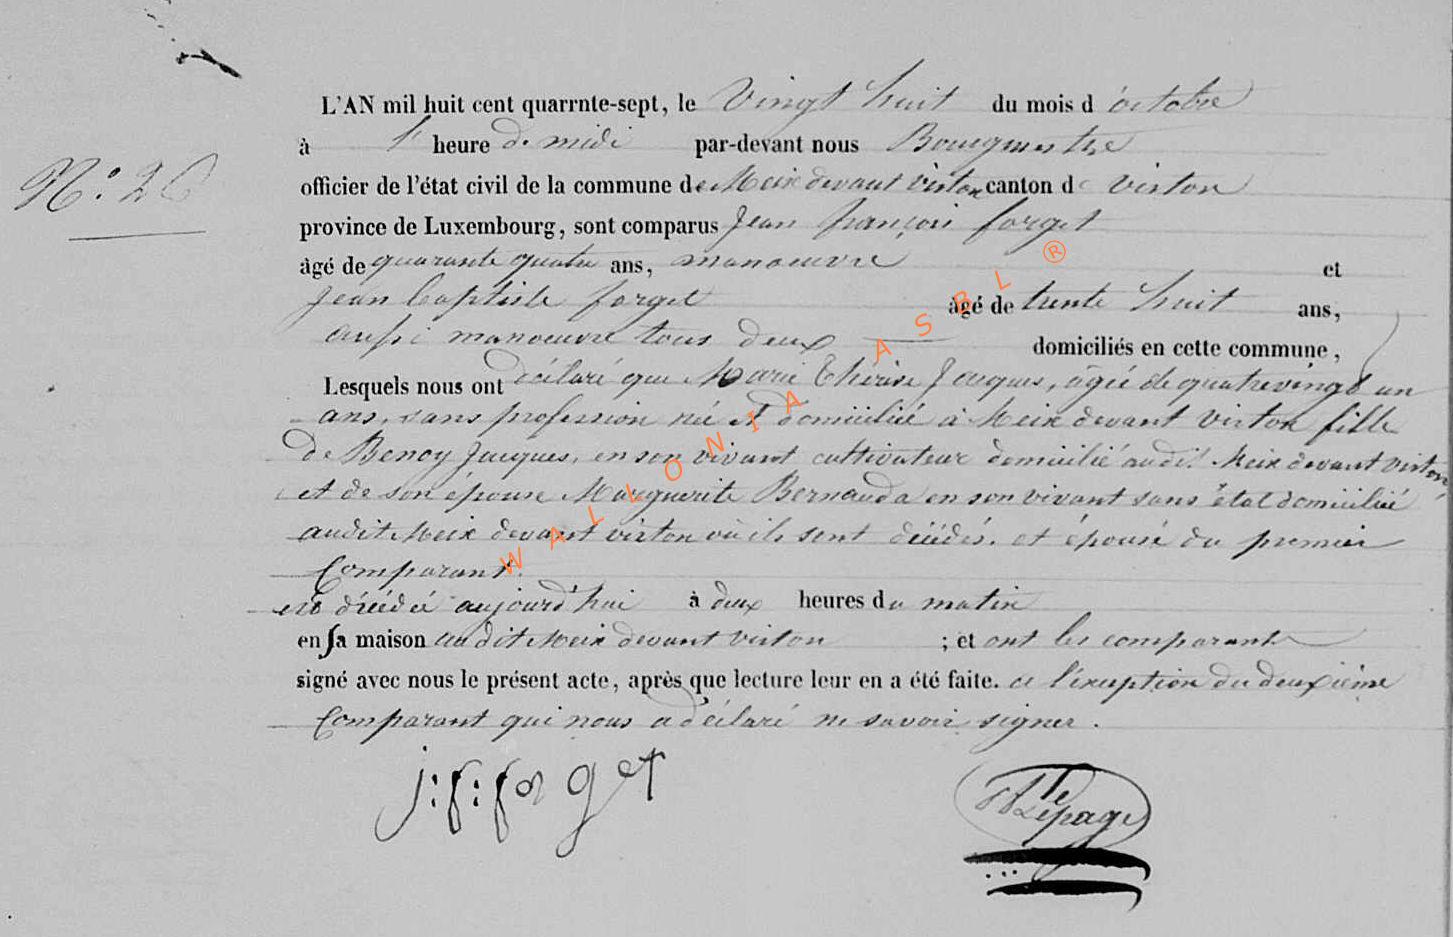 L'AN mil huit cent quarrnte-sept, le vingt huit du mois d'octobre
à 1 heure de midi par-devant nous Bourgmestre
N.° 26
officier de l'état civil de la commune de Meix devant virton canton de virton
province de Luxembourg, sont comparus Jean françois forget
âgé de quarante quatre ans, manoeuvre et
Jean baptiste forget âgé de trente huit ans,
aussi manoeuvre tous deux domiciliés en cette commune,
Lesquels nous ont déclaré que Marie Thérèse Jacques, âgée de quatrevingt un
ans, sans profession née et domiciliée à Meix devant virton fille
de Benoy Jacques, en son vivant cultivateur domicilié audit Meix devant virton,
et de son épouse Marguerite Bernauda en son vivant sans état domiciliée
audit Meix devant virton où ils sont décédés. et épouse du premier
Comparant.
est décédée aujourd'hui à deux heures du matin
en sa maison audit Meix devant virton ; et ont les comparants
signé avec nous le présent acte, après que lecture leur en a été faite. a l'exception du deuxième
Comparant qui nous a déclaré ne savoir signer.
j:f:forget
Lepage
WALLONIA ASBL ®